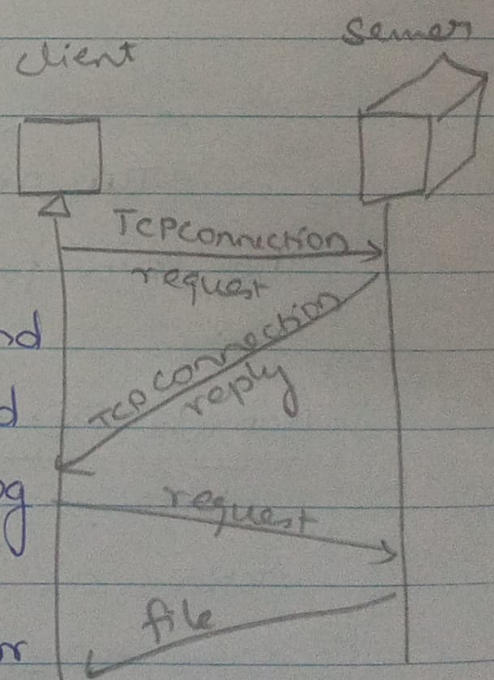 client
Server
TCPconnection
request
TCP connection
reply
request
file